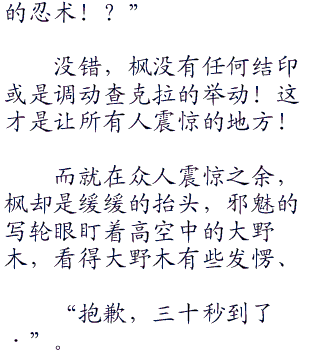 的忍术！？”
没错，枫没有任何结印
或是调动查克拉的举动！这
才是让所有人震惊的地方！
而就在众人震惊之余，
枫却是缓缓的抬头，邪魅的
写轮眼盯着高空中的大野
木，看得大野木有些发愣、
“抱歉，三十秒到了
·”。